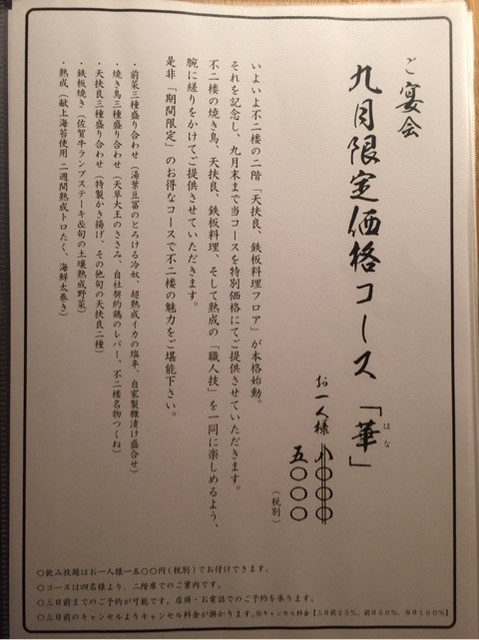 ご宴会
九月限定価格コース「華」
はな
お一人様 八〇〇〇
五〇〇〇
(税別)
いよいよ不二楼の二階「天扶良、鉄板料理フロア」が本格始動。
それを記念し、九月末まで当コースを特別価格にてご提供させていただきます。
不二楼の焼き鳥、天扶良、鉄板料理、そして熟成の「職人技」を一同に楽しめるよう、
腕に縒りをかけてご提供させていただきます。
是非「期間限定」のお得なコースで不二楼の魅力をご堪能下さい。
・前菜三種盛り合わせ(湯葉豆冨のとろける冷奴、超熟成イカの塩辛、自家製糠漬け盛合せ)
・焼き鳥三種盛り合わせ(天草大王のささみ、自社契約鶏のレバー、不二楼名物つくね)
・天扶良三種盛り合わせ(特製かき揚げ、その他旬の天扶良二種)
・鉄板焼き(佐賀牛ランプステーキ&旬の土壌熟成野菜)
・熟成(献上海苔使用 二週間熟成トロたく、海鮮太巻き)
〇飲み放題はお一人様一五〇〇円(税別)でお付けできます。
〇コースは四名様より、二階席でのご案内です。
〇三日前までのご予約が可能です。店頭・お電話でのご予約を承ります。
〇三日前のキャンセルよりキャンセル料金が掛かります。※キャンセル料金【三日前25%、前日50%、当日100%】